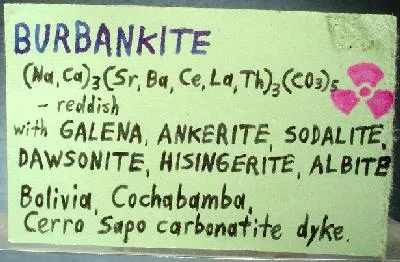 BURBANKITE
(Na,Ca)3(Sr,Ba,Ce,La,Th)3(CO3)5
- reddish
with GALENA, ANKERITE, SODALITE,
DAWSONITE, HISINGERITE, ALBITE
Bolivia, Cochabamba,
Cerro Sapo carbonatite dyke.